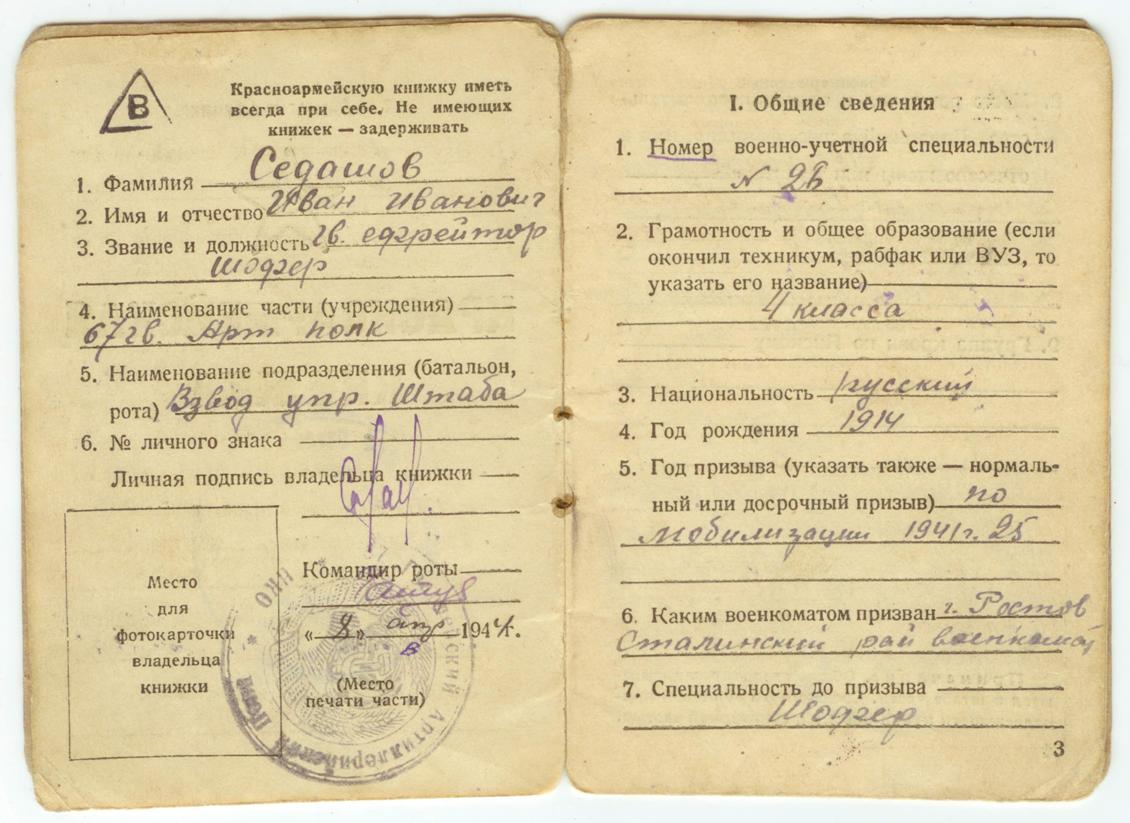 В
Красноармейскую книжку иметь
всегда при себе. Не имеющих
книжек — задерживать
1. Фамилия Седашов
2. Имя и отчество Иван Иванович
3. Звание и должность гв. ефрейтор
Шофер
4. Наименование части (учреждения)
67 гв. Арт полк
5. Наименование подразделения (батальон,
рота) Взвод упр. Штаба
6. № личного знака
Личная подпись владельца книжки
Место
для
фотокарточки
владельца
книжки
Командир роты
«8» апр 1944 г.
в
(Место
печати части)
НКО * Артиллерийский Полк *
I. Общие сведения
1. Номер военно-учетной специальности
N 26
2. Грамотность и общее образование (если
окончил техникум, рабфак или ВУЗ, то
указать его название)
4 класса
3. Национальность русский
4. Год рождения 1914
5. Год призыва (указать также — нормаль-
ный или досрочный призыв) по
мобилизации 1941 г. 25
6. Каким военкоматом призван г. Ростов
Сталинский рай военкомат
7. Специальность до призыва
Шофер
3